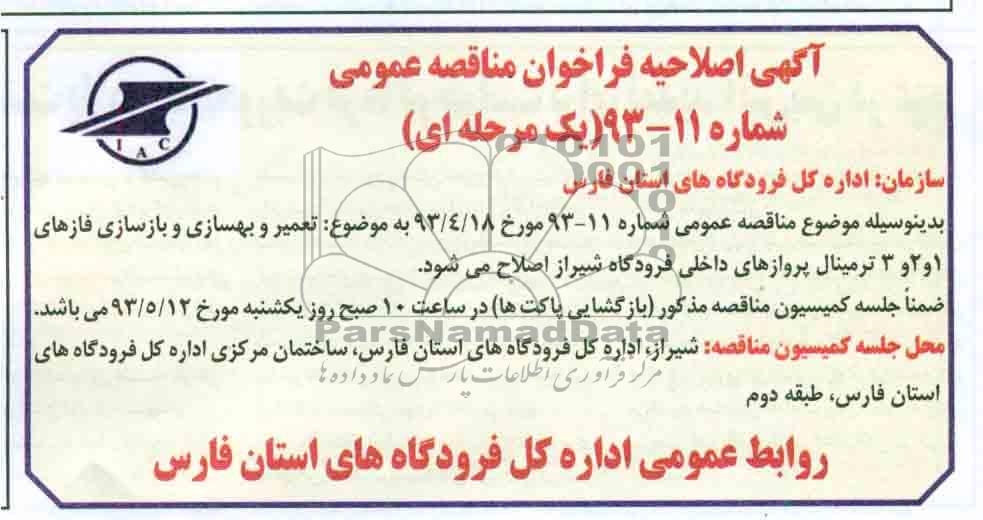 آگهی اصلاحیه فراخوان مناقصه عمومی
شماره ۱۱-۹۳(یک مرحله ای)
IAC
سازمان: اداره کل فرودگاه های استان فارس
بدینوسیله موضوع مناقصه عمومی شماره ۱۱-۹۳ مورخ ۹۳/٤/۱۸ به موضوع: تعمیر و بهسازی و بازسازی فازهای
۱و۲و ۳ ترمینال پروازهای داخلی فرودگاه شیراز اصلاح می شود.
ضمناً جلسه کمیسیون مناقصه مذکور (بازگشایی پاکت ها) در ساعت ۱۰ صبح روز یکشنبه مورخ ۹۳/۵/۱۲ می باشد.
ParsNamadData
محل جلسه کمیسیون مناقصه: شیراز، اداره کل فرودگاه های استان فارس، ساختمان مرکزی اداره کل فرودگاه های
مرکز فرآوری اطلاعات پارس نماد داده ها
استان فارس، طبقه دوم
روابط عمومی اداره کل فرودگاه های استان فارس